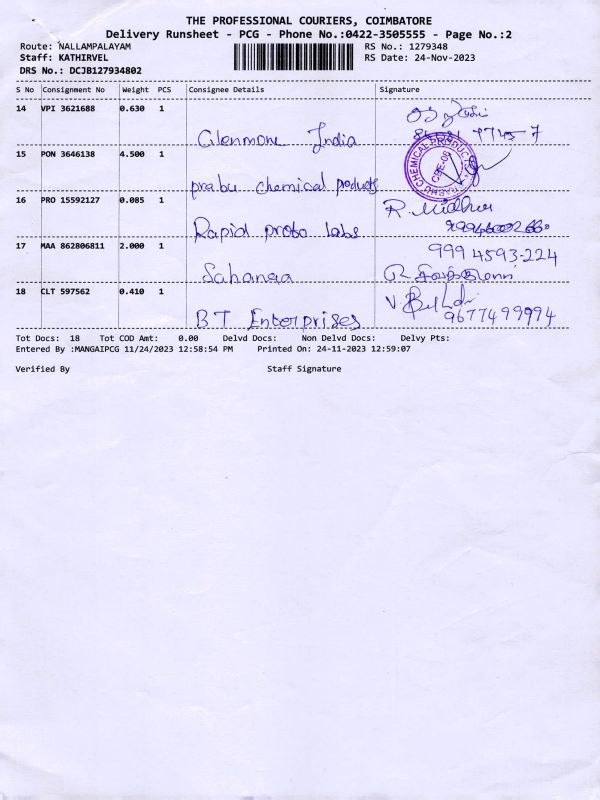 THE PROFESSIONAL COURIERS, COIMBATORE
Delivery Runsheet - PCG - Phone No.:0422-3505555 - Page No.:2
Route: NALLAMPALAYAM RS No.: 1279348
Staff: KATHIRVEL RS Date: 24-Nov-2023
DRS No.: DCJB127934802
S No Consignment No Weight PCS Consignee Details Signature
14 VPI 3621688 0.630 1
Glenmore India
15 PON 3646138 4.500 1
prabu chemical products
16 PRO 15592127 0.085 1 R. Midhun
Rapid proto labs
17 MAA 862806811 2.000 1 999 4593-224
Sahanaa
18 CLT 597562 0.410 1
BT Enterprises 9677499994
Tot Docs: 18 Tot COD Amt: 0.00 Delvd Docs: Non Delvd Docs: Delvy Pts:
Entered By :MANGAIPCG 11/24/2023 12:58:54 PM Printed On: 24-11-2023 12:59:07
Verified By Staff Signature